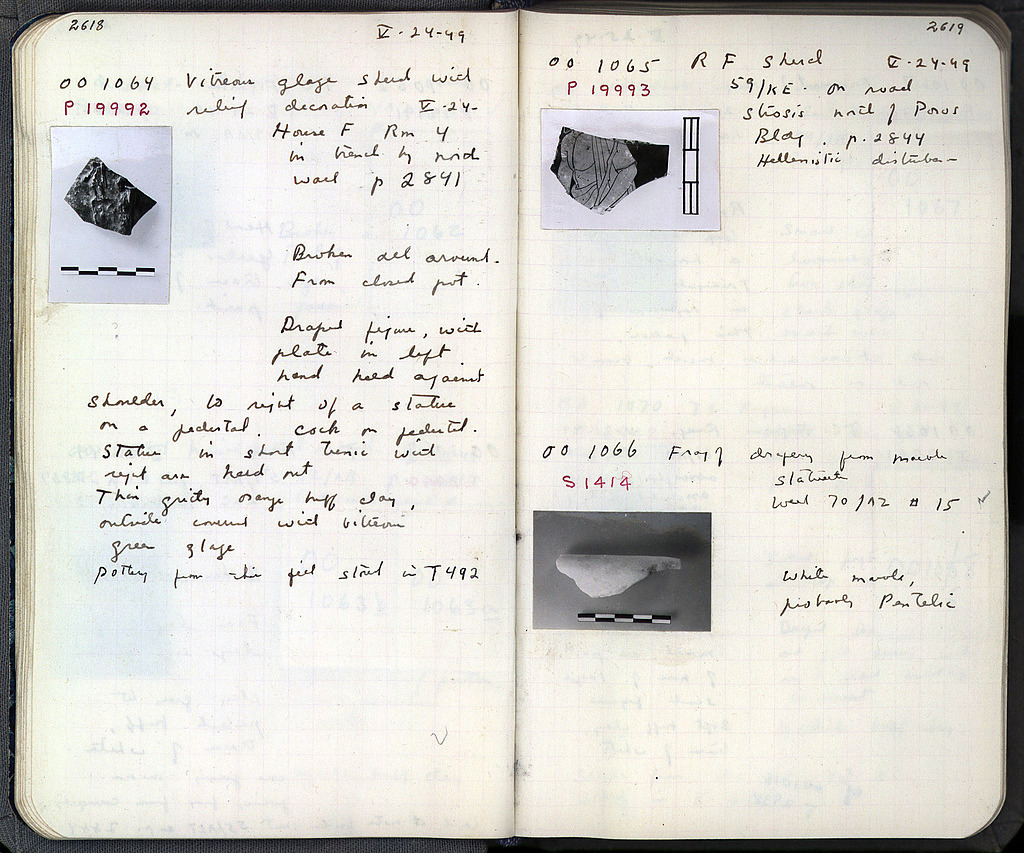 2618
V-24-49
OO 1064 Vitreous glaze sherd with
P 19992 relief decoration V-24-
House F Rm 4
in trench by north
wall p 2841
Broken all around.
From closed pot.
Draped figure, with
plate in left
hand held against
shoulder, to right of a statue
on a pedestal. cock on pedestal.
Statue in short tunic with
right arm held out
Thin gritty orange buff clay,
outside covered with vitreous
green glaze
Pottery from this fill stored in T492
2619
OO 1065 R F Sherd V-24-49
P 19993 59/KE on road
strosis north of Poros
Bldg. p. 2844
Hellenistic disturban-
OO 1066 Frag of drapery from marble
S 1414 statuette
Well 70/ # 15
White marble,
probably Pentelic